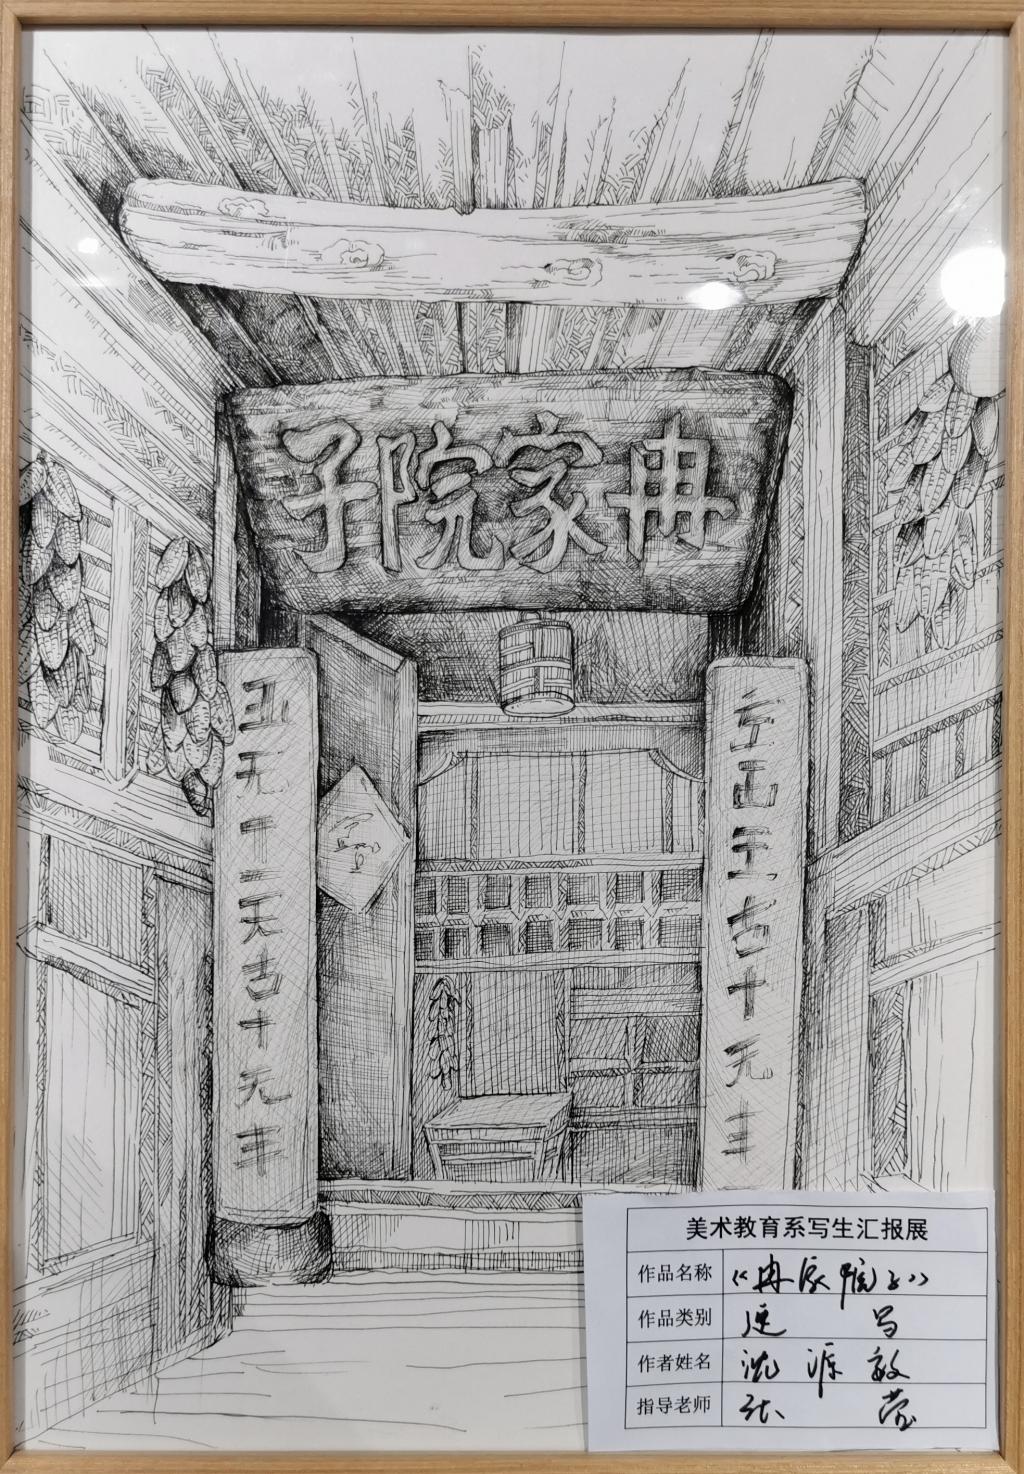 冉家院子
立山工古十无丰
丑无十二天古十无丰
美术教育系写生汇报展
作品名称 《冉家院子》
作品类别 速写
作者姓名 沈源敏
指导老师 张莹